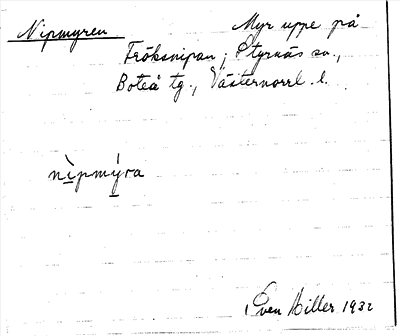 Nipmyren Myr uppe på
Fröksnipan, Styrnäs sn.,
Boteå tg., Västernorrl. l.
nìpmýra
Sven Hiller 1932